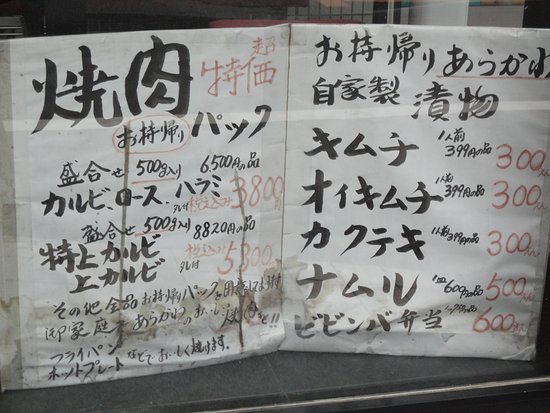 焼肉
超
特価
お持帰りパック
盛合せ 500g入り 6,500円の品
カルビ、ロース、ハラミ
タレ付 税込み 3800円
盛合せ 500g入り 8820円の品
特上カルビ
上カルビ
タレ付 税込み 5800
その他全品お持帰りパックを用意してます
御家庭であらかわのおいしい焼肉を!!
フライパン
ホットプレート などでおいしく焼けます。
お持帰り あらかわ
自家製 漬物
キムチ 1人前 399円の品 300
オイキムチ 1人前 399円の品 300
カクテキ 1人前 399円の品 300
ナムル 1皿 600円の品 500
ビビンバ弁当 600